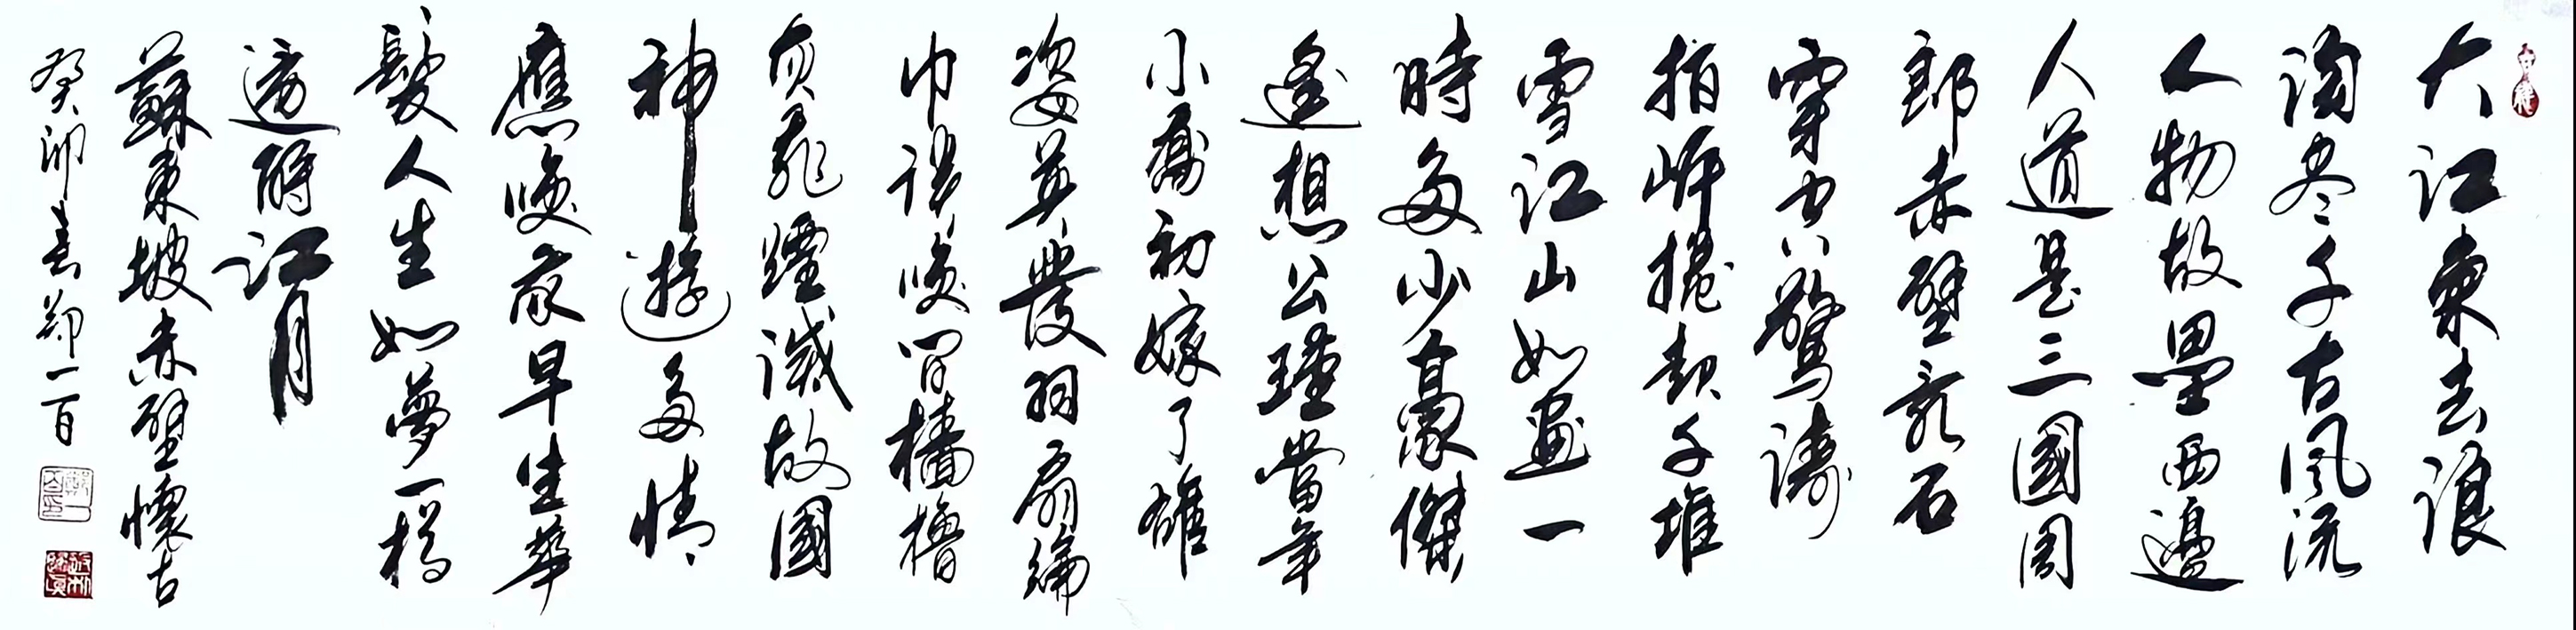 大江東去浪
淘尽千古風流
人物故壘西邊
人道是三國周
郎赤壁亂石
穿空驚濤
拍岸捲起千堆
雪江山如畫一
時多少豪傑
遙想公瑾當年
小喬初嫁了雄
姿英發羽扇綸
巾談咲間檣櫓
灰飛煙滅故國
神遊多情
應咲我早生華
髮人生如夢一樽
還酹江月
蘇東坡赤壁懷古
癸卯春鄭一百